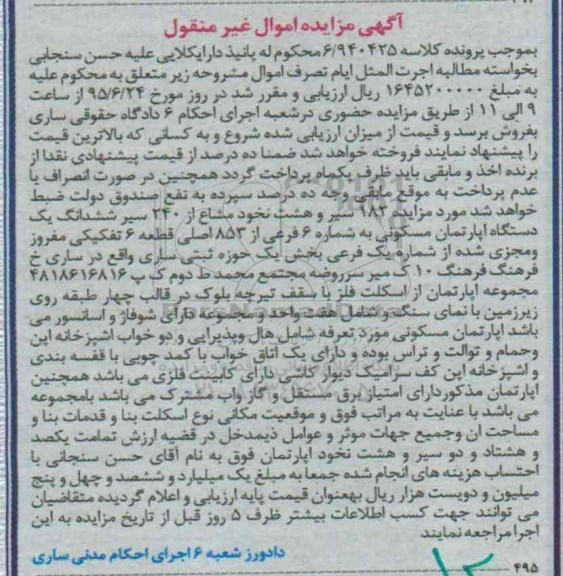 آگهی مزایده اموال غیر منقول
بموجب پرونده کلاسه ۶/۹۴۰۴۲۵ محکوم له پانیذ دارایکلایی علیه حسن سنجابی
بخواسته مطالبه اجرت المثل ایام تصرف اموال مشروحه زیر متعلق به محکوم علیه
به مبلغ ۱۶۴۵۲۰۰۰۰۰ ریال ارزیابی و مقرر شد در روز مورخ ۹۵/۶/۲۴ از ساعت
۹ الی ۱۱ از طریق مزایده حضوری درشعبه اجرای احکام ۶ دادگاه حقوقی ساری
بفروش برسد و قیمت از میزان ارزیابی شده شروع و به کسانی که بالاترین قیمت
را پیشنهاد نمایند فروخته خواهد شد ضمنا ده درصد از قیمت پیشنهادی نقدا از
برنده اخذ و مابقی باید ظرف یکماه پرداخت گردد همچنین در صورت انصراف یا
عدم پرداخت به موقع مابقی وجه ده درصد سپرده به نفع صندوق دولت ضبط
خواهد شد مورد مزایده ۱۸۲ سیر و هشت نخود مشاع از ۲۴۰ سیر ششدانگ یک
دستگاه اپارتمان مسکونی به شماره ۶ فرعی از ۸۵۳ اصلی قطعه ۶ تفکیکی مفروز
ومجزی شده از شماره یک فرعی بخش یک حوزه ثبتی ساری واقع در ساری خ
فرهنگ فرهنگ ۱۰ ک میر سرروضه مجتمع محمد ط دوم ک پ ۴۸۱۸۶۱۶۸۱۶
مجموعه اپارتمان از اسکلت فلز با سقف تیرچه بلوک در قالب چهار طبقه روی
زیرزمین با نمای سنگ و شامل هفت واحد و مجموعه دارای شوفاژ و اسانسور می
باشد اپارتمان مسکونی مورد تعرفه شامل هال وپذیرایی و دو خواب اشپزخانه این
وحمام و توالت و تراس بوده و دارای یک اتاق خواب با کمد چوبی با قفسه بندی
و اشپزخانه این کف سرامیک دیوار کاشی دارای کابینت فلزی می باشد همچنین
اپارتمان مذکوردارای امتیاز برق مستقل و گاز واب مشترک می باشد بامجموعه
می باشد با عنایت به مراتب فوق و موقعیت مکانی نوع اسکلت بنا و قدمات بنا و
مساحت ان وجمیع جهات موثر و عوامل ذیمدخل در قضیه ارزش تمامت یکصد
و هشتاد و دو سیر و هشت نخود اپارتمان فوق به نام آقای حسن سنجانی با
احتساب هزینه های انجام شده جمعا به مبلغ یک میلیارد و ششصد و چهل و پنج
میلیون و دویست هزار ریال بهعنوان قیمت پایه ارزیابی و اعلام گردیده متقاضیان
می توانند جهت کسب اطلاعات بیشتر ظرف ۵ روز قبل از تاریخ مزایده به این
اجرا مراجعه نمایند
دادورز شعبه ۶ اجرای احکام مدنی ساری
۴۹۵